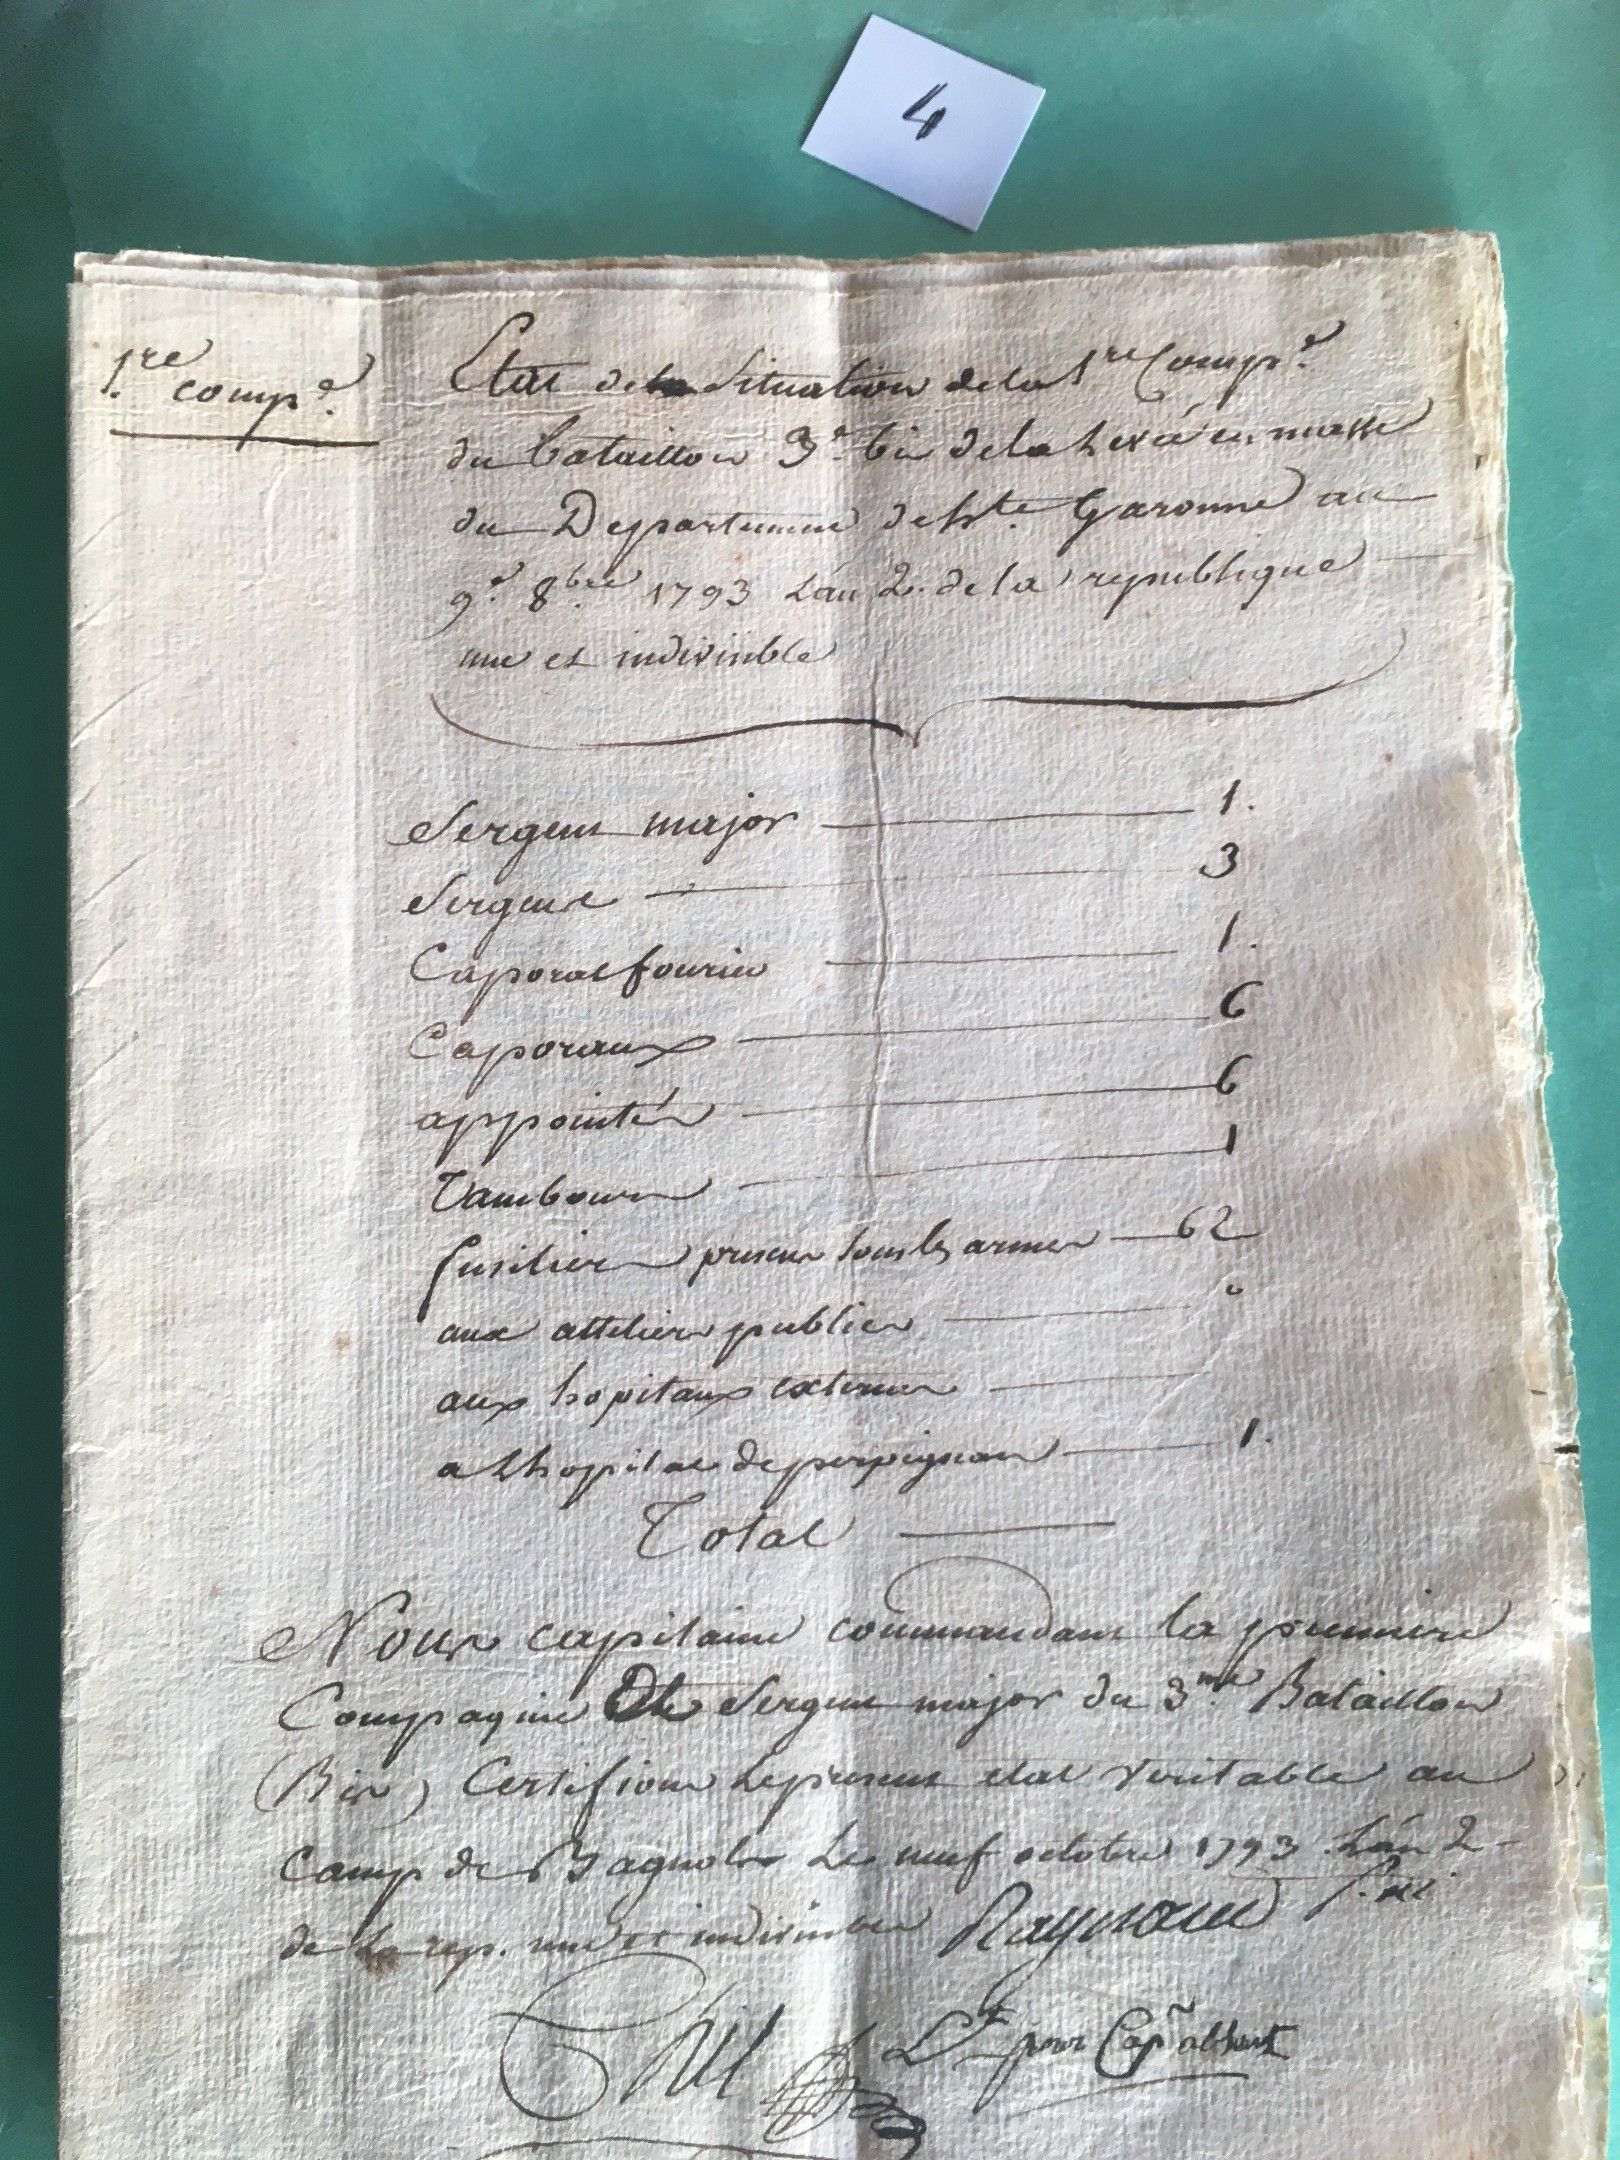 4
1.re comp.e
Etat de la Situation de la 1re Comp.e
du bataillon 3.e bis de la Levée en masse
du Departement de h.te Garonne au
9.e 8.bre 1793 L'an 2. de la republique
une et indivisible
Sergent major 1.
Sergens 3
Caporal fourier 1.
Caporaux 6
appointés 6
Tambours 1
fusiliers presens sous les armes 62
aux atteliers publics "
aux hopitaux externes
a Lhopital de perpignan 1.
Total
Nous capitaine commandant la premiere
Compagnie Et Sergent major du 3.me Bataillon
(Bis) Certifions Le present etat veritable au
Camp de Bagnols Le neuf octobre 1793 L'an 2
de La rep. une et indivisible Raynaud
Lt pour Capñ absent